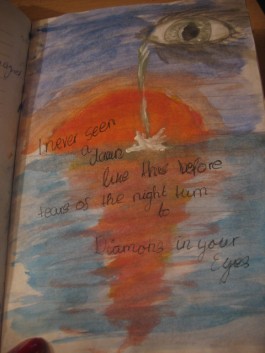 I never seen
a dawn
like this before
tears of the night turn
to
Diamons in your
Eyes